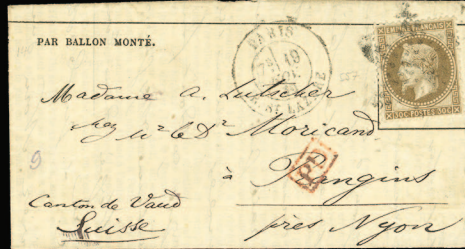 PAR BALLON MONTÉ.
PARIS
19
R. ST LAZARE
EMPIRE FRANÇAIS
30C POSTES 30C
Madame A. Lutscher
chez Mr le Dr Moricand
à Prangins
PD
Canton de Vaud
Suisse
près Nyon
9